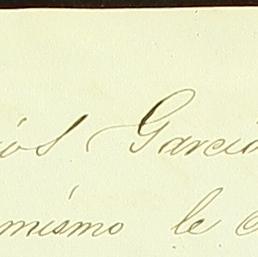 ios Garcia
mismo le